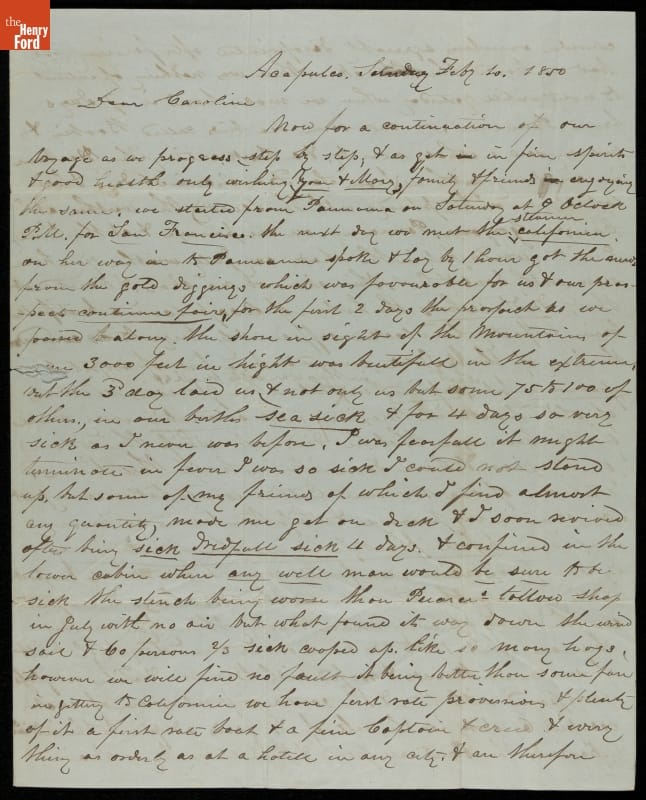 the
Henry
Ford
Acapulco. Sunday Feby 10. 1850
Dear Caroline
Now for a continuation of our
voyage as we progress step by step, & as yet in in fine spirits
& good health only wishing you & Mary, family & friends enjoying
the same, we started from Pannama on Saturday at 9 Oclock
P.M. for San Francisco. the next day we met the steamer californien
on her way in to Pannama spoke & lay by 1 hour got the news
from the gold diggings which was favourable for us & our pros-
pects continue fair, for the first 2 days the prospect as we
passed along the shore in sight of the Mountains of
some 3000 feet in hight was beutifull in the extreme,
but the 3d day laid us & not only us but some 75 to 100 of
others, in our births sea sick & for 4 days so very
sick as I never was before. I was fearfull it might
terminate in fever I was so sick I could not stand
up, but some of my friends of which I find almost
any quantity made me get on deck & I soon revived
after being sick dredfull sick 4 days. & confined in the
lower cabin where any well man would be sure to be
sick the stench being worse than Pearces tollow shop
in July with no air but what found it way down the wind
sail & 60 persons 2/3 sick cooped up like so many hogs,
however we will find no fault it being better than some fare
in getting to California we have first rate provisions & plenty
of it a first rate boat & a fine Captain & crew & every
thing as orderly as at a hotell in any city. & are therefore